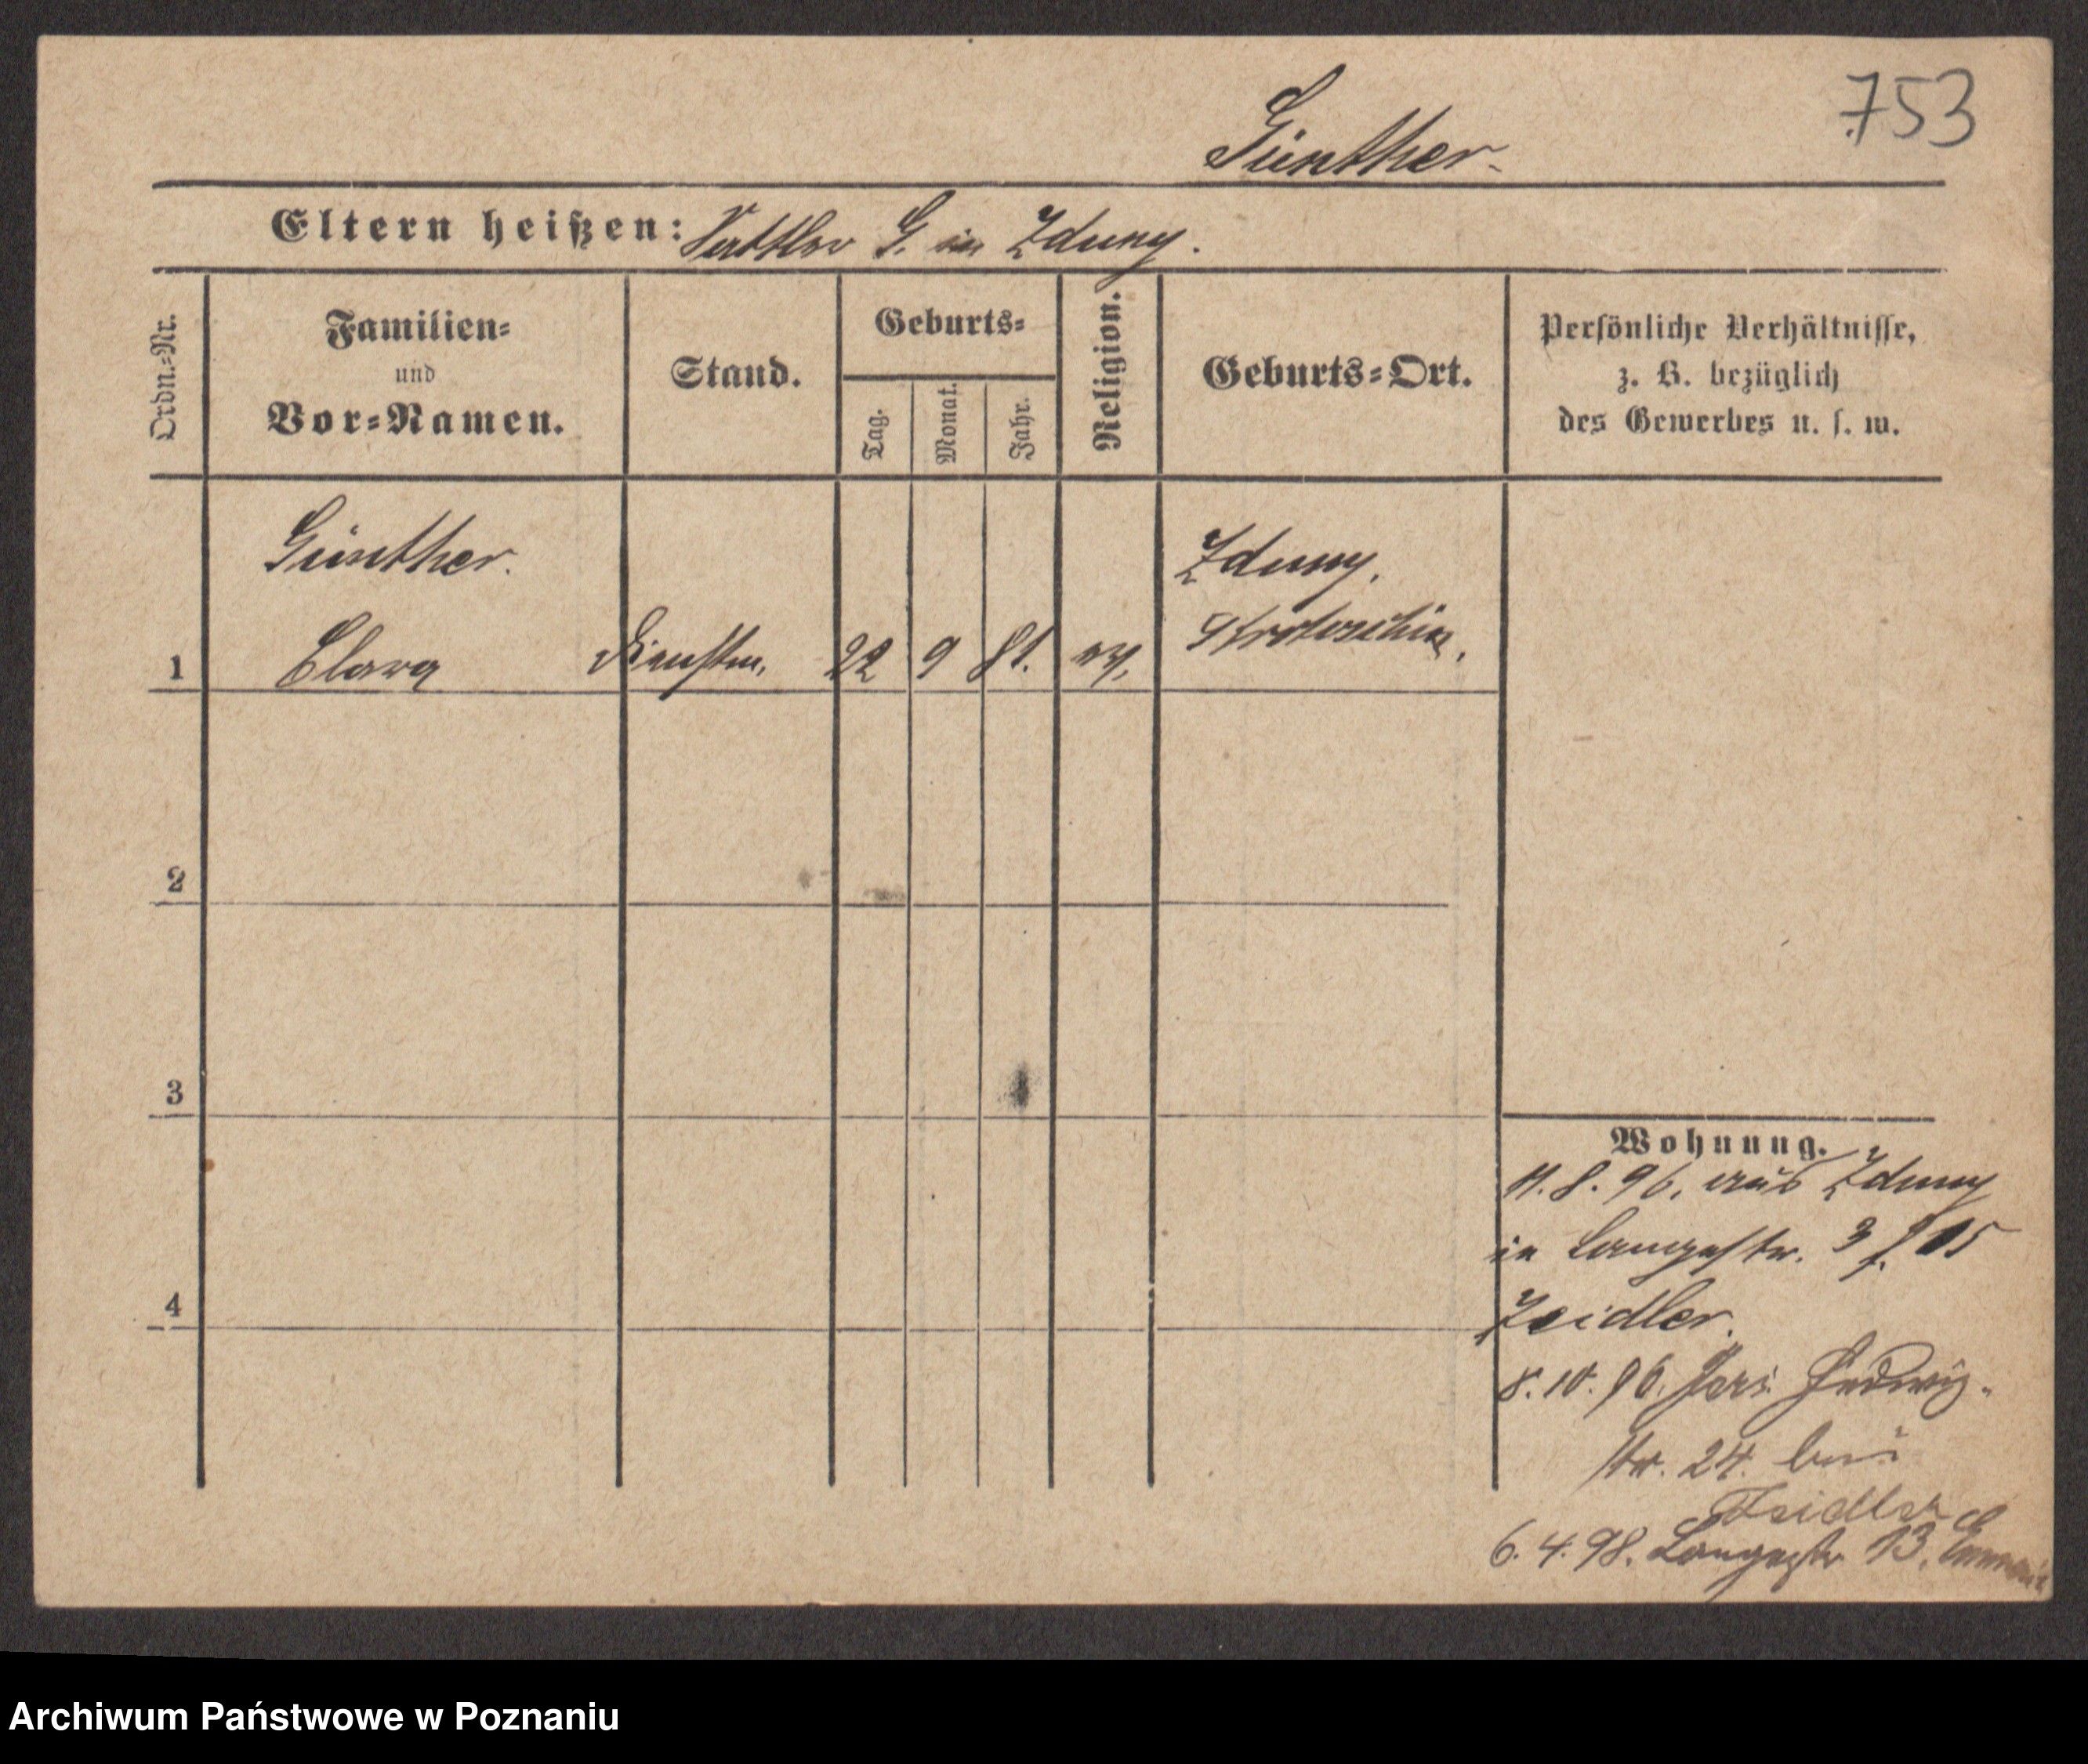 753
Günther.
Eltern heißen: Sattler G. in Zduny.
Ordn.-Nr.
Familien-
und
Vor-Namen.
Stand.
Geburts-
Tag.
Monat.
Jahr.
Religion.
Geburts-Ort.
Persönliche Verhältnisse,
z. B. bezüglich
des Gewerbes u. s. w.
Günther.
Zduny.
Krotoschin.
1 Clara Dienstm. 22 9 81. ev.
2
3
4
Wohnung.
11. 8. 96. aus Zduny
in Langestr. 3 f. 15
Zeidler.
8. 10. 96. Jers. Hedwig-
str. 24. bei
Zeidler
6. 4. 98. Langestr. 13.
Archiwum Państwowe w Poznaniu